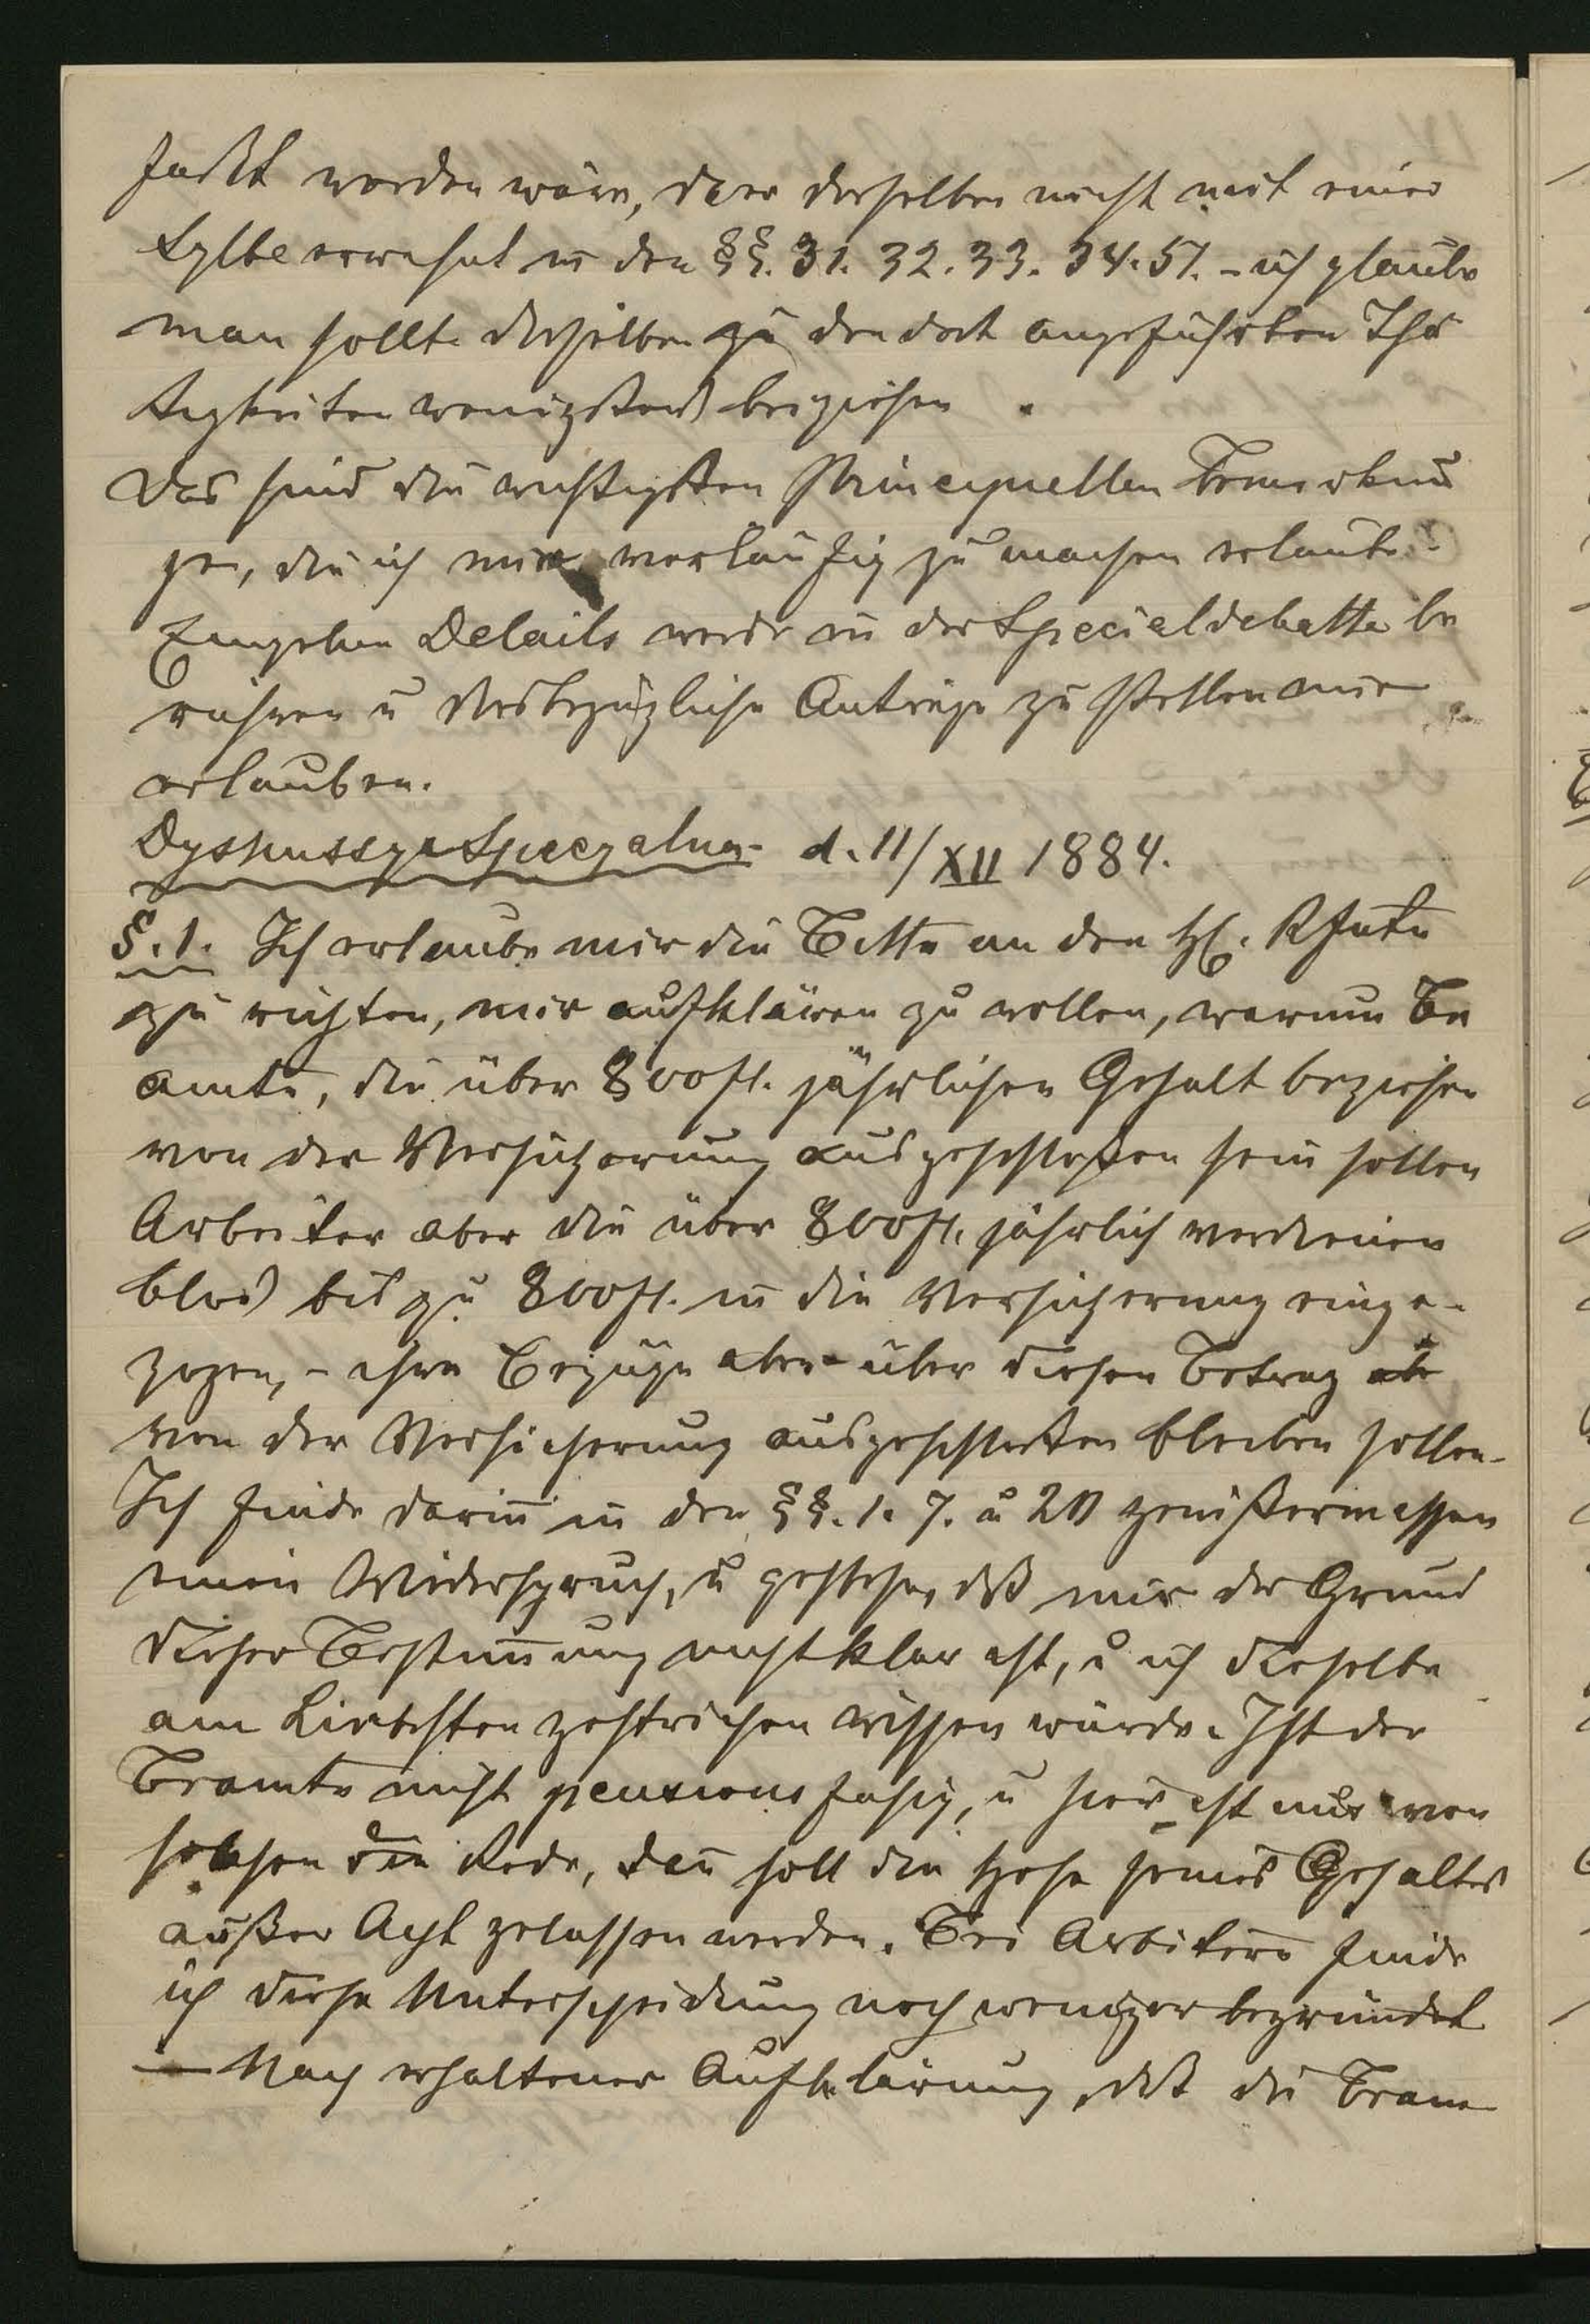 faßt worden wäre, da er derselben nicht mit einer
Sylbe erwähnt in den §§. 31. 32. 33. 34. 51. - ich glaube
man sollte dieselben zu den dort angeführten Thä
tigkeiten wenigstens beiziehen.
Das sind die wichtigsten Principiellen Bemerkun
gen, die ich mir vorläufig zu machen erlaube.
Einzelne Details werde in der Specialdebatte be
rühren u diesbezügliche Anträge zu stellen mir
erlauben.
Dyskussya Specyalna d. 11/XII 1884.
§. 1. Ich erlaube mir die Bitte an den H. Rfnte
zu richten, mir aufklären zu wollen, warum Be
amte, die über 800 fl. jährlichen Gehalt beziehen
von der Versicherung ausgeschloßen sein sollen
Arbeiter aber die über 800 fl. jährlich verdienen
blos bis zu 800 fl. in die Versicherung einge-
zogen, - ihre Bezüge aber über diesen Betrag
von der Versicherung ausgeschloßen bleiben sollen.
Ich finde darin in den §§. 1. 7. u 20 gewißermassen
einen Widerspruch, u gestehe, dß mir der Grund
dieser Bestimmung nicht klar ist, u ich dieselbe
am Liebsten gestrichen wissen würde. Ist der
Beamte nicht pensionsfähig, u hier ist nur von
solchen die Rede, dann soll die Höhe seines Gehaltes
außer Acht gelassen werden. Bei Arbeitern finde
ich diese Unterscheidung noch weniger begründet
— Nach erhaltener Aufklärung, dß die Beam